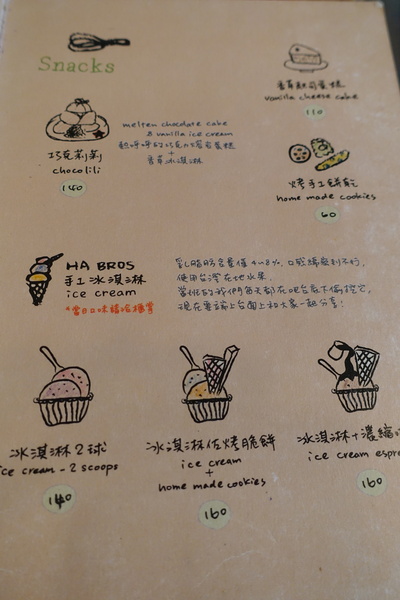 Snacks
香草起司蛋糕
vanilla cheese cake
110
melten chocolate cake
& vanilla ice cream
熱呼呼的巧克力熔岩蛋糕
+
香草冰淇淋
巧克莉莉
chocolili
140
烤手工餅乾
home made cookies
60
HA BROS
手工冰淇淋
ice cream
*當日口味請洽櫃買
乳脂肪含量僅4~8%,口感綿密則不行,
使用台灣在地水果.
當批的我們每天都在吧台底下偷挖它,
現在要讓上台面上和大家一起分享!
冰淇淋2球
ice cream - 2 scoops
140
冰淇淋佐烤脆餅
ice cream
+
home made cookies
160
冰淇淋+濃縮
ice cream espr
160